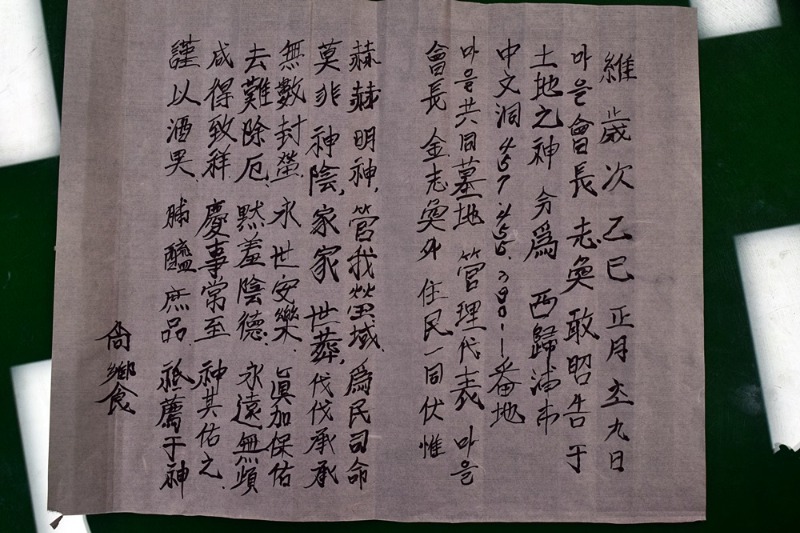 維 歲 次 乙巳 正月 初九日
마을會長 志奐 敢昭告于
土地之神 今爲 西歸浦市
中文洞 457. 456. 番地
마을共同墓地 管理代表 마을
會長 金志奐 外 住民一同 伏惟
赫赫明神, 管我塋域, 爲民司命
莫非 神陰, 家家 世葬, 代代承承
無數封塋, 永世安樂. 眞加保佑
去難除厄, 默羞陰德. 永遠無頉
咸得致祥 慶事常至 神其佑之.
謹以酒果 脯醯庶品 祗薦于神
尙饗